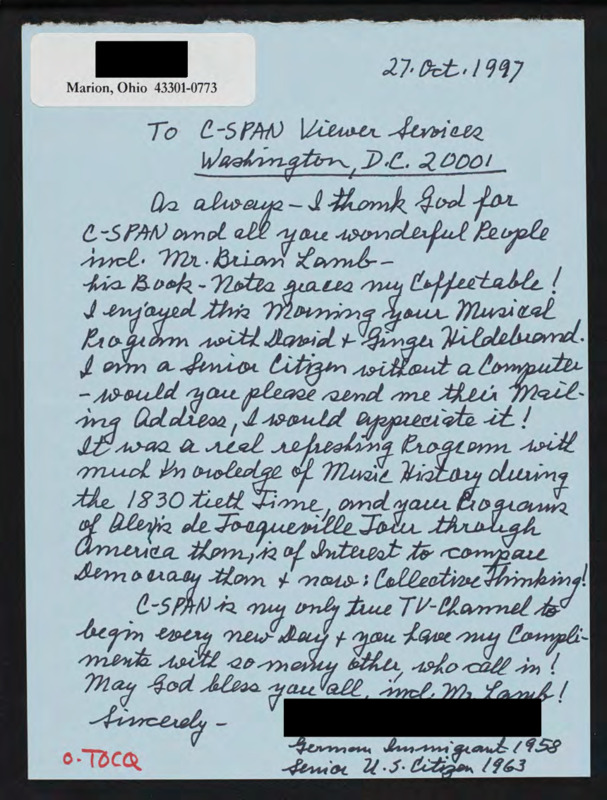 Marion, Ohio 43301-0773
27. Oct. 1997
To C-SPAN Viewer Services
Washington, D.C. 20001
As always – I thank God for
C-SPAN and all you wonderful People
incl. Mr. Brian Lamb –
his Book-Notes graces my Coffeetable!
I enjoyed this Morning your Musical
Program with David + Ginger Hildebrand.
I am a Senior Citizen without a Computer
– would you please send me their Mail-
ing Address, I would appreciate it!
It was a real refreshing Program with
much Knowledge of Music History during
the 1830 tieth Time, and your Programs
of Alexis de Tocqueville Tour through
America then, is of Interest to compare
Democracy then + now: Collective Thinking!
C-SPAN is my only true TV-Channel to
begin every new Day + you have my Compli-
ments with so many other, who call in!
May God bless you all, incl. Mr Lamb!
Sincerely –
German Immigrant 1958
Senior U.S. Citizen 1963
O. TOCQ